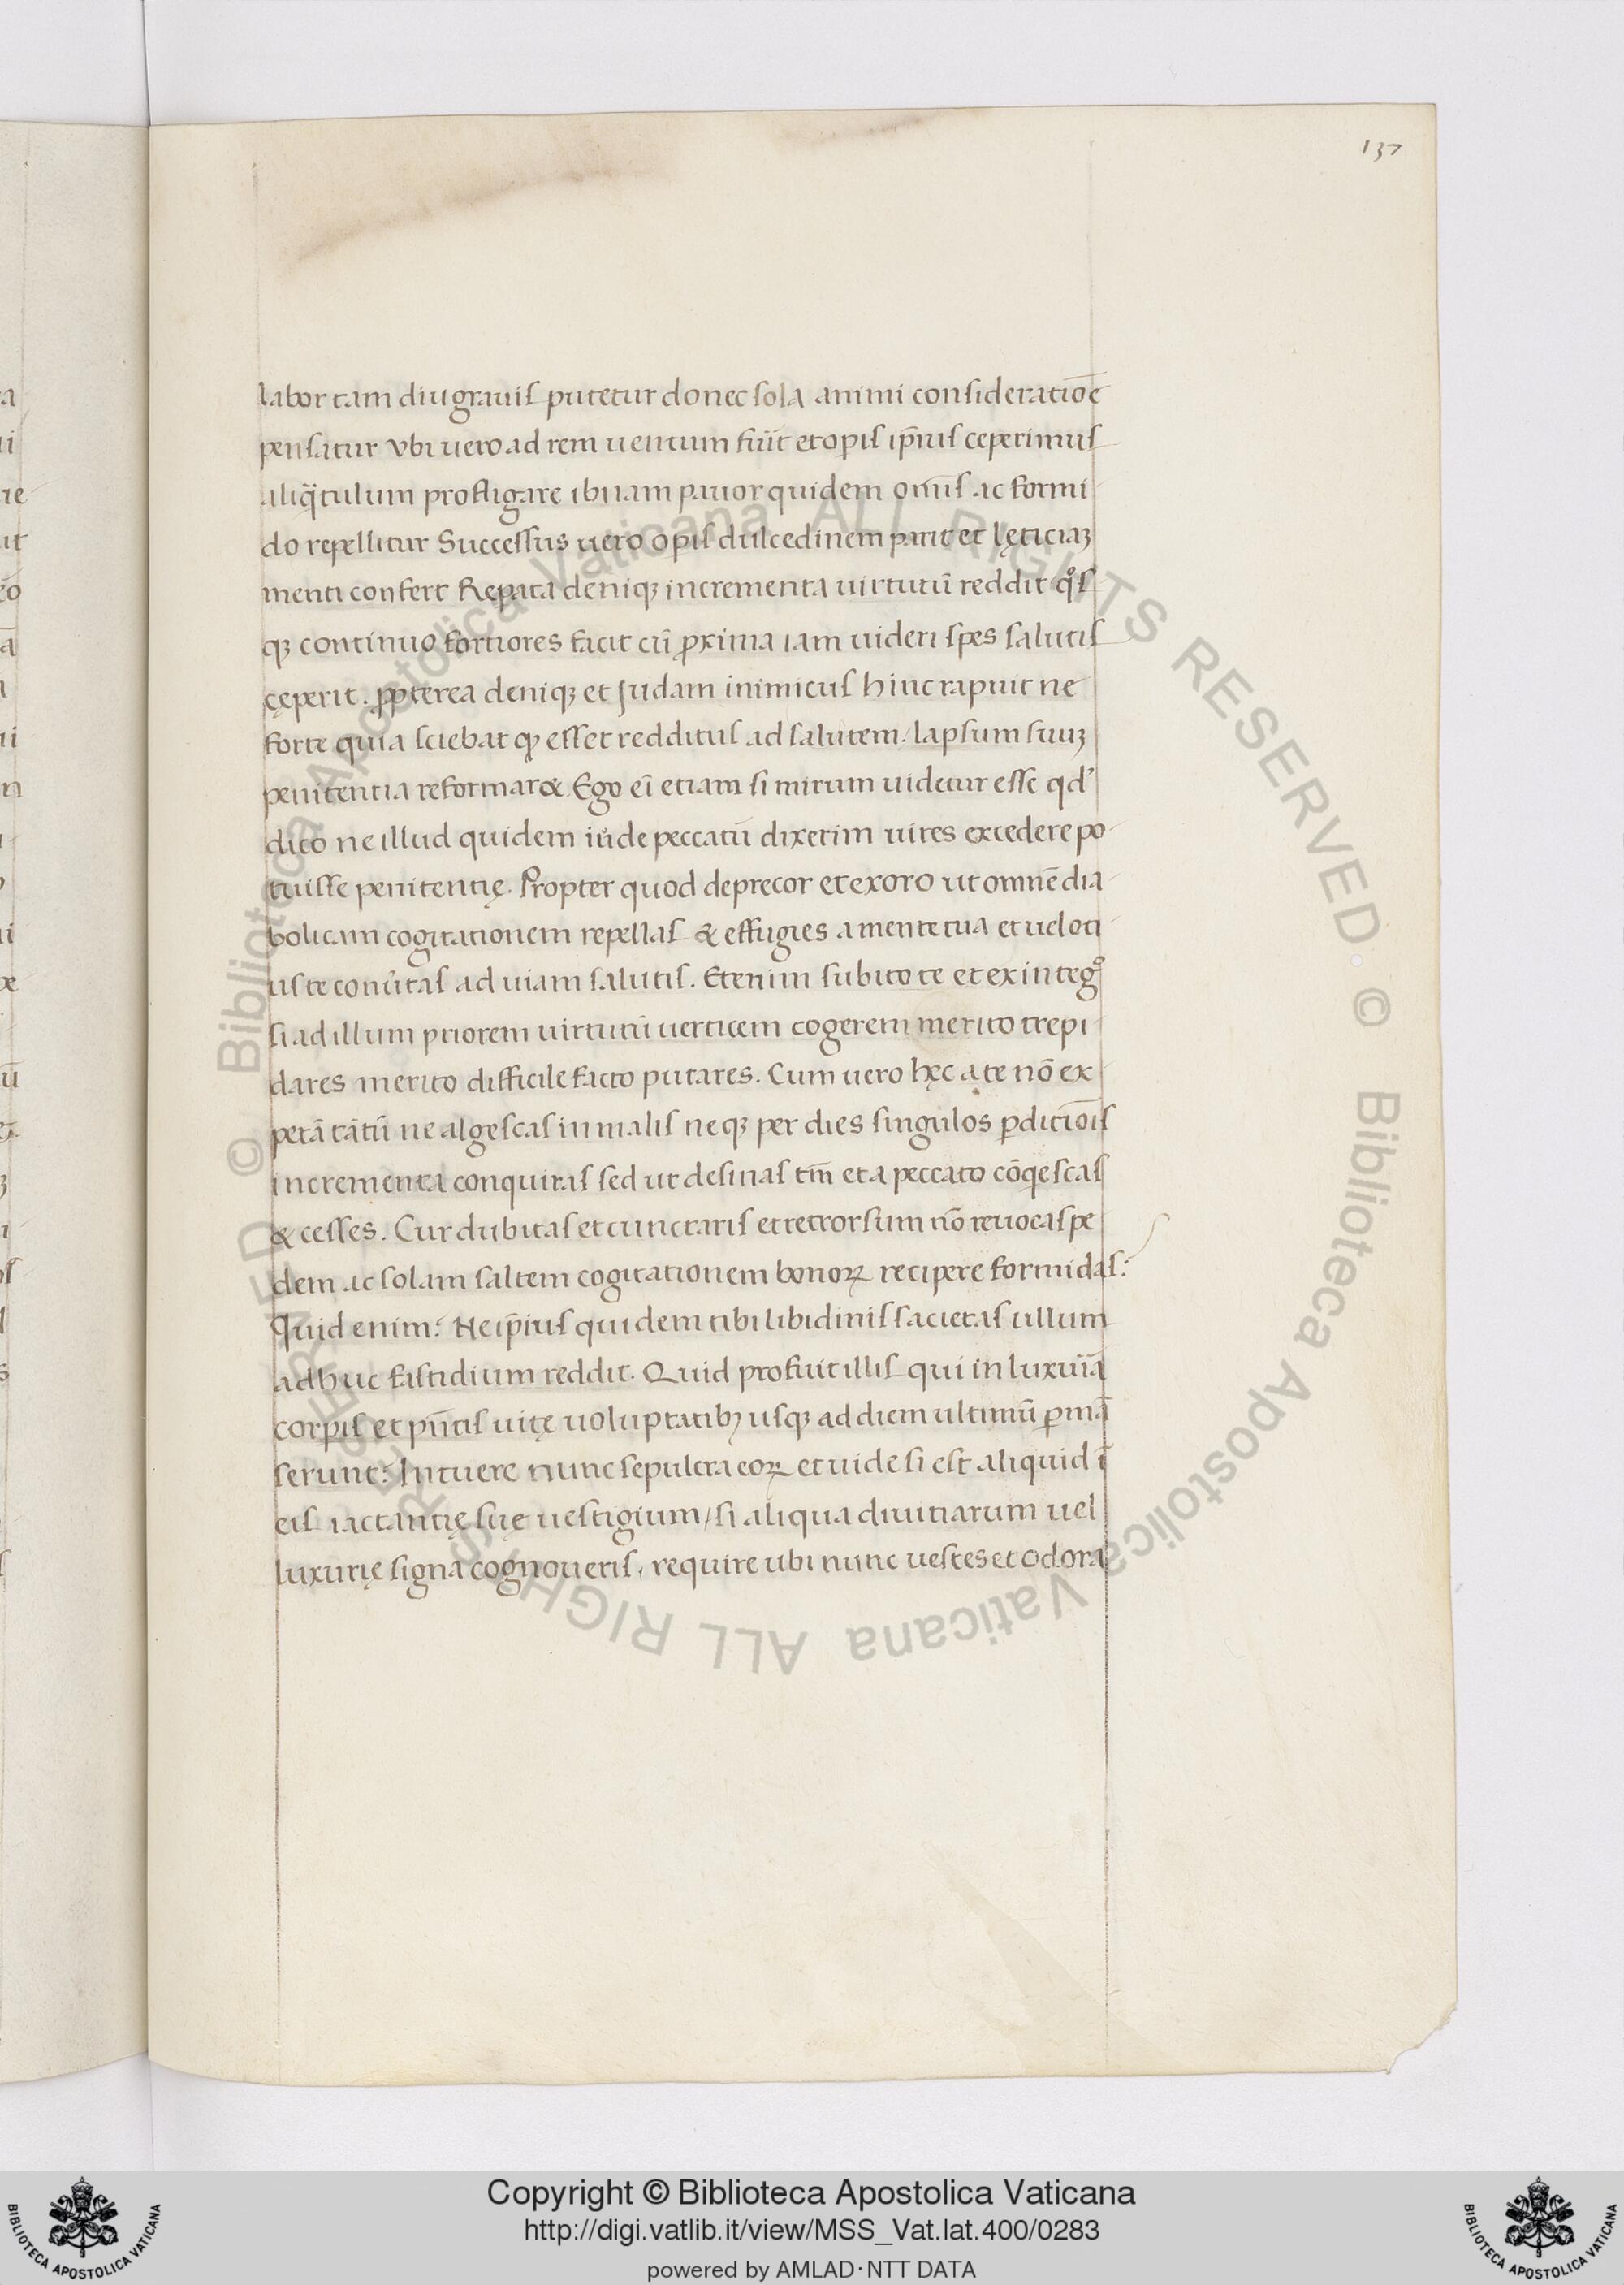 137
labor tam diu grauis putetur donec sola animi consideratiõe
pensatur vbi uero ad rem uentum fuĩt et opis ip̃ius ceperimus
aliq̃tulum profligare ibi iam pauor quidem om̃is ac formi
do repellitur Successus uero opis dulcedinem parit et lęticiaꝫ
menti confert Repata deniqꝫ incrementa uirtutũ reddit qͦs
qꝫ continuo fortiores facit cũ ꝓxima iam uideri spes salutis
cęperit. ꝓpterea deniqꝫ et Judam inimicus hinc rapuit ne
forte quia sciebat qꝫ esset redditus ad salutem / lapsum suuꝫ
penitentia reformar& Ego ei̅ etiam si mirum uidetur esse qd'
dico ne illud quidem iude peccatũ dixerim uires excedere po
tuisse penitentię. Propter quod deprecor et exoro ut omnẽ dia
bolicam cogitationem repellas & effugies a mente tua et ueloti
us te conũtas ad uiam salutis. Etenim subito te et ex integͦ
si ad illum priorem uirtutũ uerticem cogerem merito trepi
dares merito difficile facto putares. Cum uero hęc a te nõ ex
petã tãtũ ne algescas in malis neqꝫ per dies singulos ꝑditiõis
incrementa conquiras sed ut desinas tm̃ et a peccato cõqescas
& cesses. Cur dubitas et cunctaris et retrorsum nõ reuocas pe
dem ac solam saltem cogitationem bonoꝝ recipere formidas?
Quid enim? Ne ip̃ius quidem tibi libidinis sacietas ullum
adhuc fastidium reddit. Quid profuit illis qui in luxuĩa
corpis et pñtis uitę uoluptatibꝫ usqꝫ ad diem ultimũ ꝑmã
serunt? Intuere nunc sepulcra eoꝝ et uide si est aliquid ĩ
eis iactantię suę uestigium / si aliqua diuitiarum uel
luxurię signa cognoueris, require ubi nunc uestes et odora
© Biblioteca Apostolica Vaticana ALL RIGHTS RESERVED
© Biblioteca Apostolica Vaticana ALL RIGHTS RESERVED
Copyright © Biblioteca Apostolica Vaticana
http://digi.vatlib.it/view/MSS_Vat.lat.400/0283
powered by AMLAD·NTT DATA
BIBLIOTECA APOSTOLICA VATICANA
BIBLIOTECA APOSTOLICA VATICANA